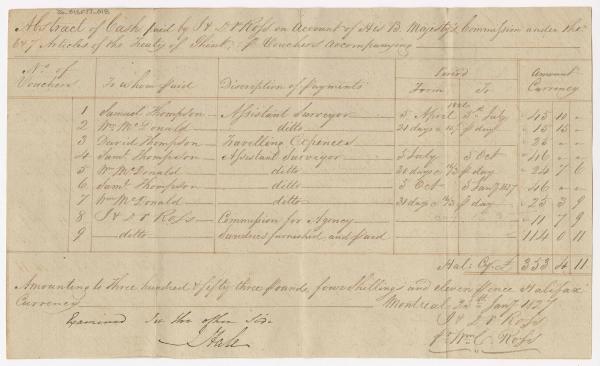 Abstract of Cash paid by J & D & P Ross on Account of His B. Majesty's Commission under the
6 & 7 Articles of the Treaty of Ghent, p Vouchers accompanying
No. of Vouchers To whom Paid Discription of Payments Period From To Amount Currency
1826
1 Samuel Thompson Assistant Surveyor 5 April 5th July 45 10 "
2 Wm McDonald ditto 21 days p day 15 15 "
3 David Thompson Travelling Expences 25 " "
4 Saml Thompson Assistant Surveyor 5 July 5 Oct 46 " "
5 Wm McDonald ditto p day 24 7 6
6 Saml Thompson ditto 5 Oct 5 Jany 1827 46 " "
7 Wm McDonald ditto p day 25 3 9
8 Ross Commission for Agency 11 7 9
9 ditto Sundries furnished and paid 114 0 11
Hal: Cy £ 353 4 11
Amounting to Three hundred & fifty three pounds, four shillings and eleven pence Halifax
Currency Montreal 1827
Examined See the other side Ross
J Hale p Wm C. Ross